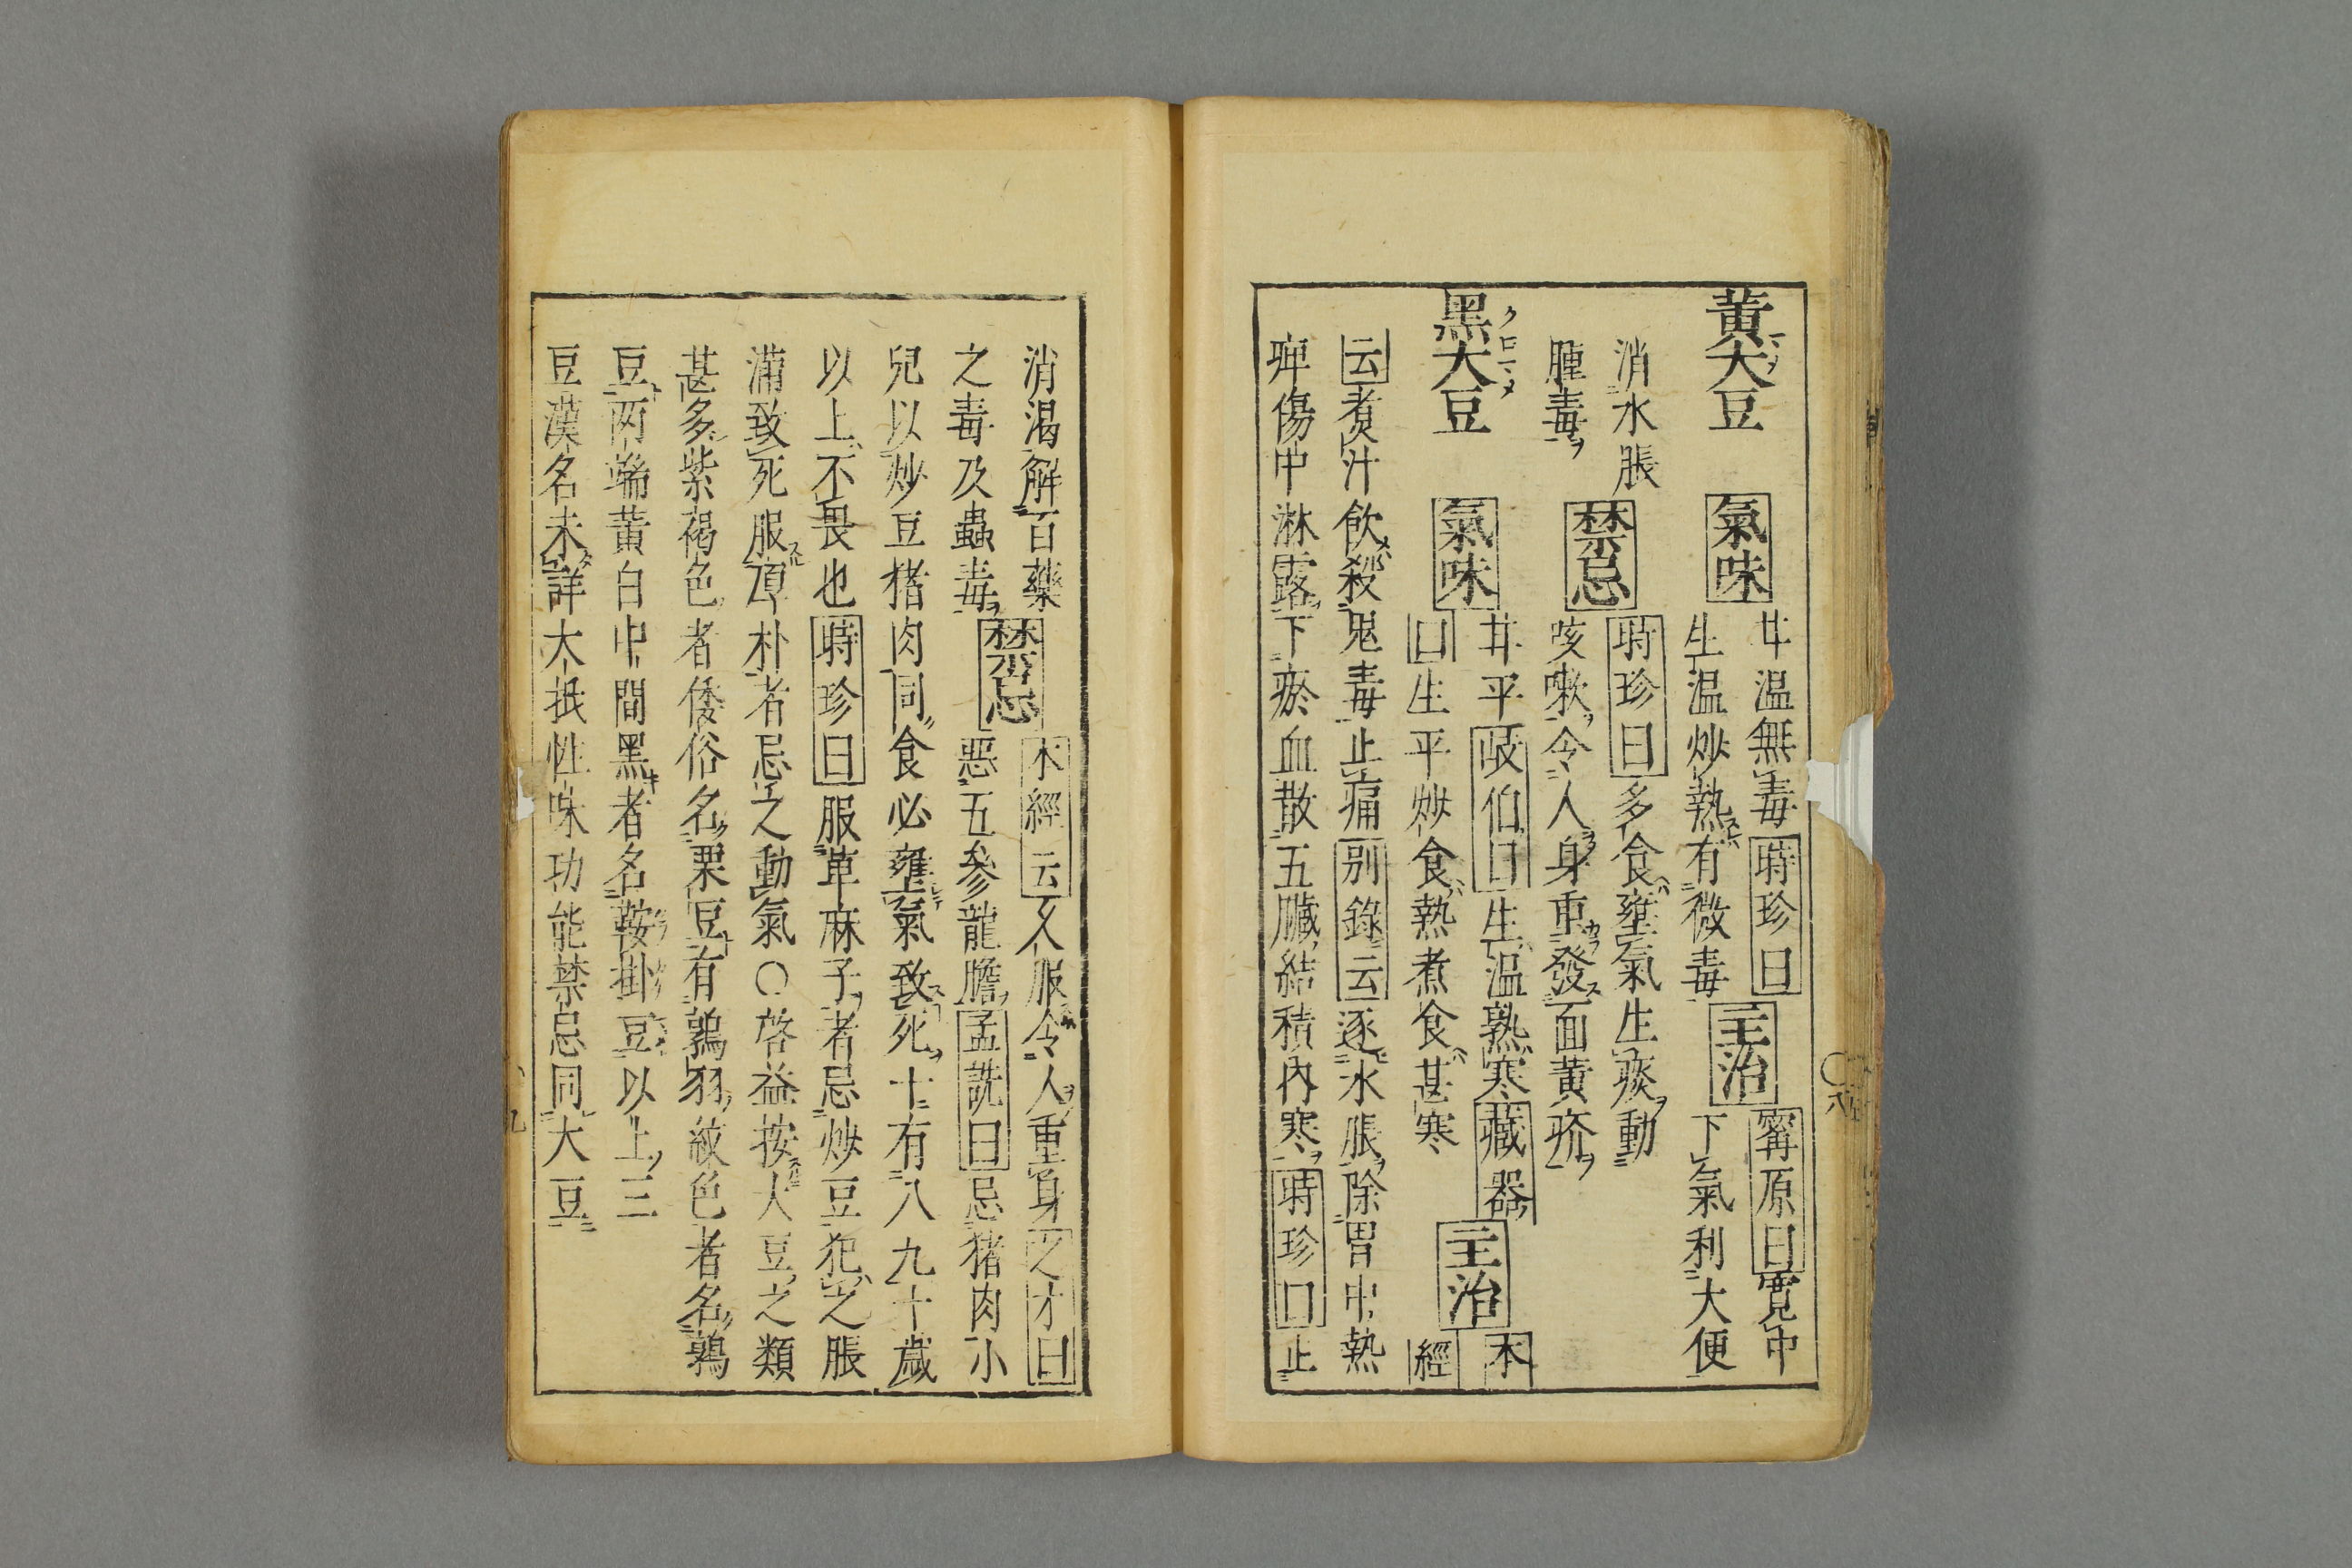 黄大豆
氣味
甘温無毒時珍曰
生温炒熱有微毒
主治
甯原曰寛中
下氣利大便
消水脹
腫毒ヲ
禁忌
時珍曰多食壅氣生痰動
咳嗽令人身重發面黄疥
クロマメ
黑大豆
氣味
甘平岐伯曰生温熟寒藏器
曰生平炒食熱煮食甚寒
主治
本
經
云煮汁飲殺鬼毒止痛別錄云逐水脹除胃中熱
痺傷中淋露下瘀血散五臓結積内寒時珍曰止
消渴解百藥
之毒及蟲毒
禁忌
本經云久服令人重身之才曰
惡五參龍膽孟詵曰忌猪肉小
兒以炒豆猪肉同食必壅氣致死十有八九十歳
以上不畏也時珍曰服萆麻子者忌炒豆犯之脹
滿致死服厚朴者忌之動氣〇啓益按大豆之類
甚多紫褐色者倭俗名栗豆有鶉羽紋色者名鶉
豆兩端黄白中間黑者名鞍掛豆以上三
豆漢名未詳大抵性味功能禁忌同大豆